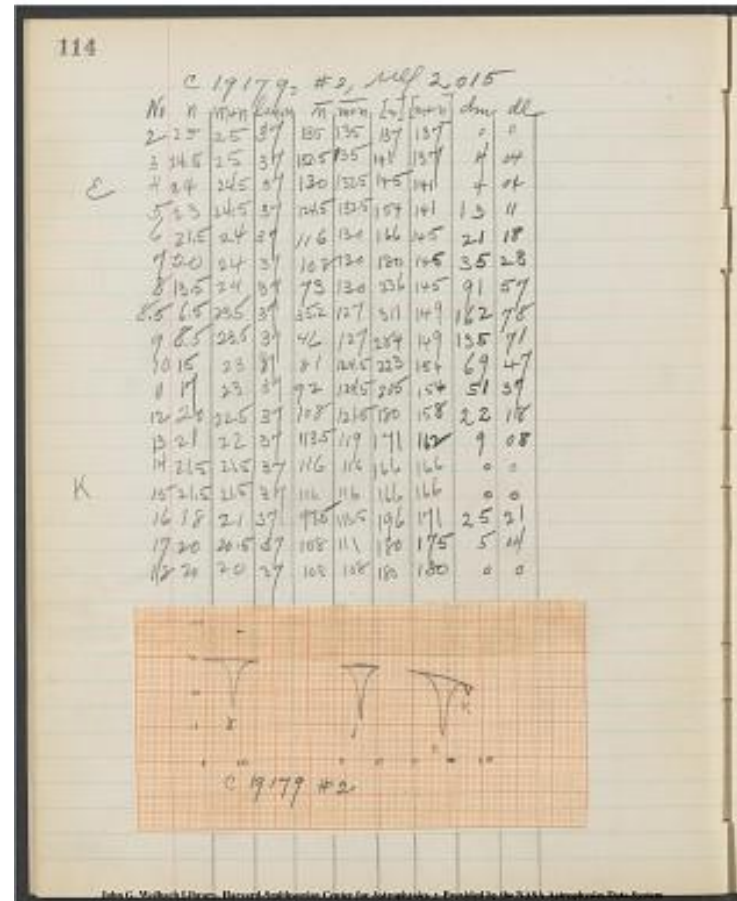 114
C 19179, #2, 2,015
No n m+n n m+n [n] [m+n] dm dl
2 25 25 37 135 135 137 137 0 0
3 24.5 25 37 132.5 135 141 137 4 04
E 4 24 24.5 37 130 132.5 145 141 4 04
5 23 24.5 37 124.5 132.5 154 141 13 11
6 21.5 24 37 116 130 166 145 21 18
7 20 24 37 108 130 180 145 35 28
8 13.5 24 37 73 130 236 145 91 57
8.5 6.5 23.5 37 352 127 311 149 162 78
9 8.5 23.5 37 46 127 284 149 135 71
10 15 23 37 81 124.5 223 154 69 47
11 17 23 37 92 124.5 205 154 51 37
12 20 22.5 37 108 121.5 180 158 22 18
13 21 22 37 113.5 119 171 162 9 08
14 21.5 21.5 37 116 116 166 166 0 0
K 15 21.5 21.5 37 116 116 166 166 0 0
16 18 21 37 97.5 113.5 196 171 25 21
17 20 20.5 37 108 111 180 175 5 04
18 20 20 37 108 108 180 180 0 0
8
K
C 19179 #2
John G. Wolbach Library, Harvard-Smithsonian Center for Astrophysics • Provided by the NASA Astrophysics Data System